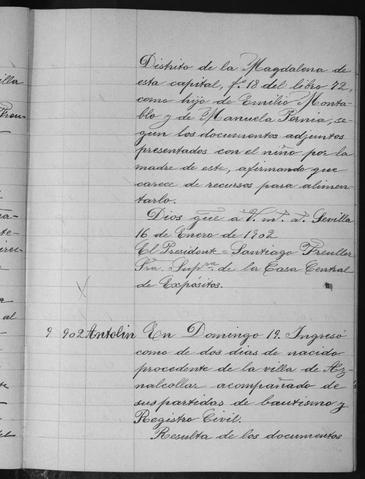 Distrito de la Magdalena de
esta capital, fº 18 del libro 72,
como hijo de Emilio Monta-
blo y de Manuela Pernia, se-
gun los documentos adjuntos
presentados con el niño por la
madre de este, afirmando que
carece de recursos para alimen-
tarlo.
Dios gue a V. m. a. Sevilla
16 de Enero de 1902
El President = Santiago
Sra. Supra. de la Casa Central
de Expósitos.
9 902 Antolin En Domingo 19. Ingresó
como de dos dias de nacido
procedente de la villa de Az-
nalcollar acompañado de
sus partidas de bautismo y
Registro Civil.
Resulta de los documentos